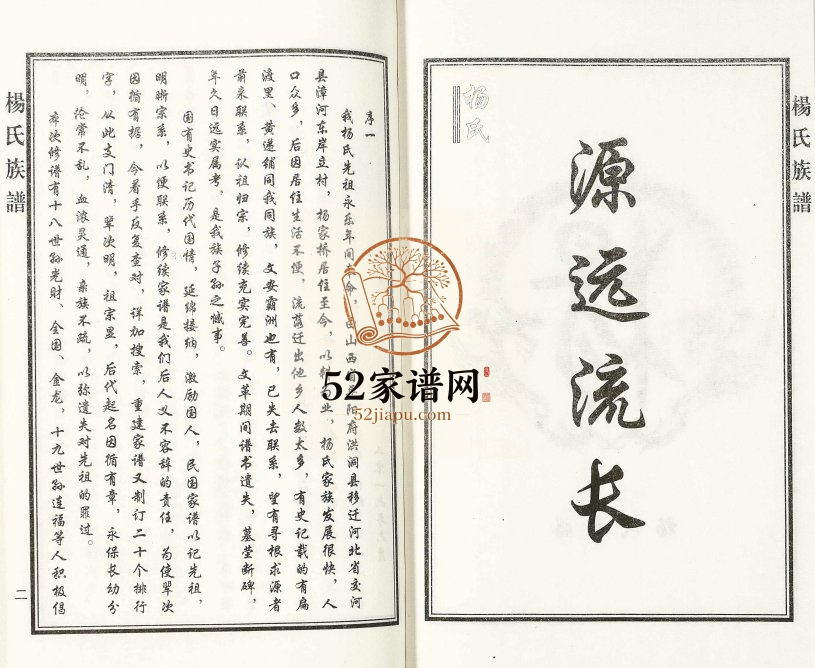 楊氏族譜
杨氏
源远流长
序一
我杨氏先祖永乐年间
山西
阳府洪洞县移迁河北省交河
县漳河东岸立村，杨家桥居住至今，以耕
业，杨氏家族发展很快，人
口众多，后因居住生活不便，流落迁出他乡人数太多，有史记载的有扁
渡里、黄递铺同我同族，文安霸洲也有，已失去联系，望有寻根求源者
前来联系，认祖归宗，修续充实完善。文革期间谱书遗失，墓茔断碑，
年久日远实属考，是我族子孙之憾事。
国有史书记历代国情，延绵接纳，激励国人，民国家谱以记先祖，
明晰宗系，以便联系，修续家谱是我们后人义不容辞的责任，为使辈次
因循有据，今着手反复查对，详加搜索，重建家谱又制订二十个排行
字，从此支门清，辈次明，祖宗显，后代起名因循有章，永保长幼分
明，伦常不乱，血浓灵通，亲族不疏，以弥遗失对先祖的罪过。
本次修谱有十八世孙光财、全国、金龙，十九世孙连福等人积极倡
楊氏族譜
二
52家谱网
52jiapu.com